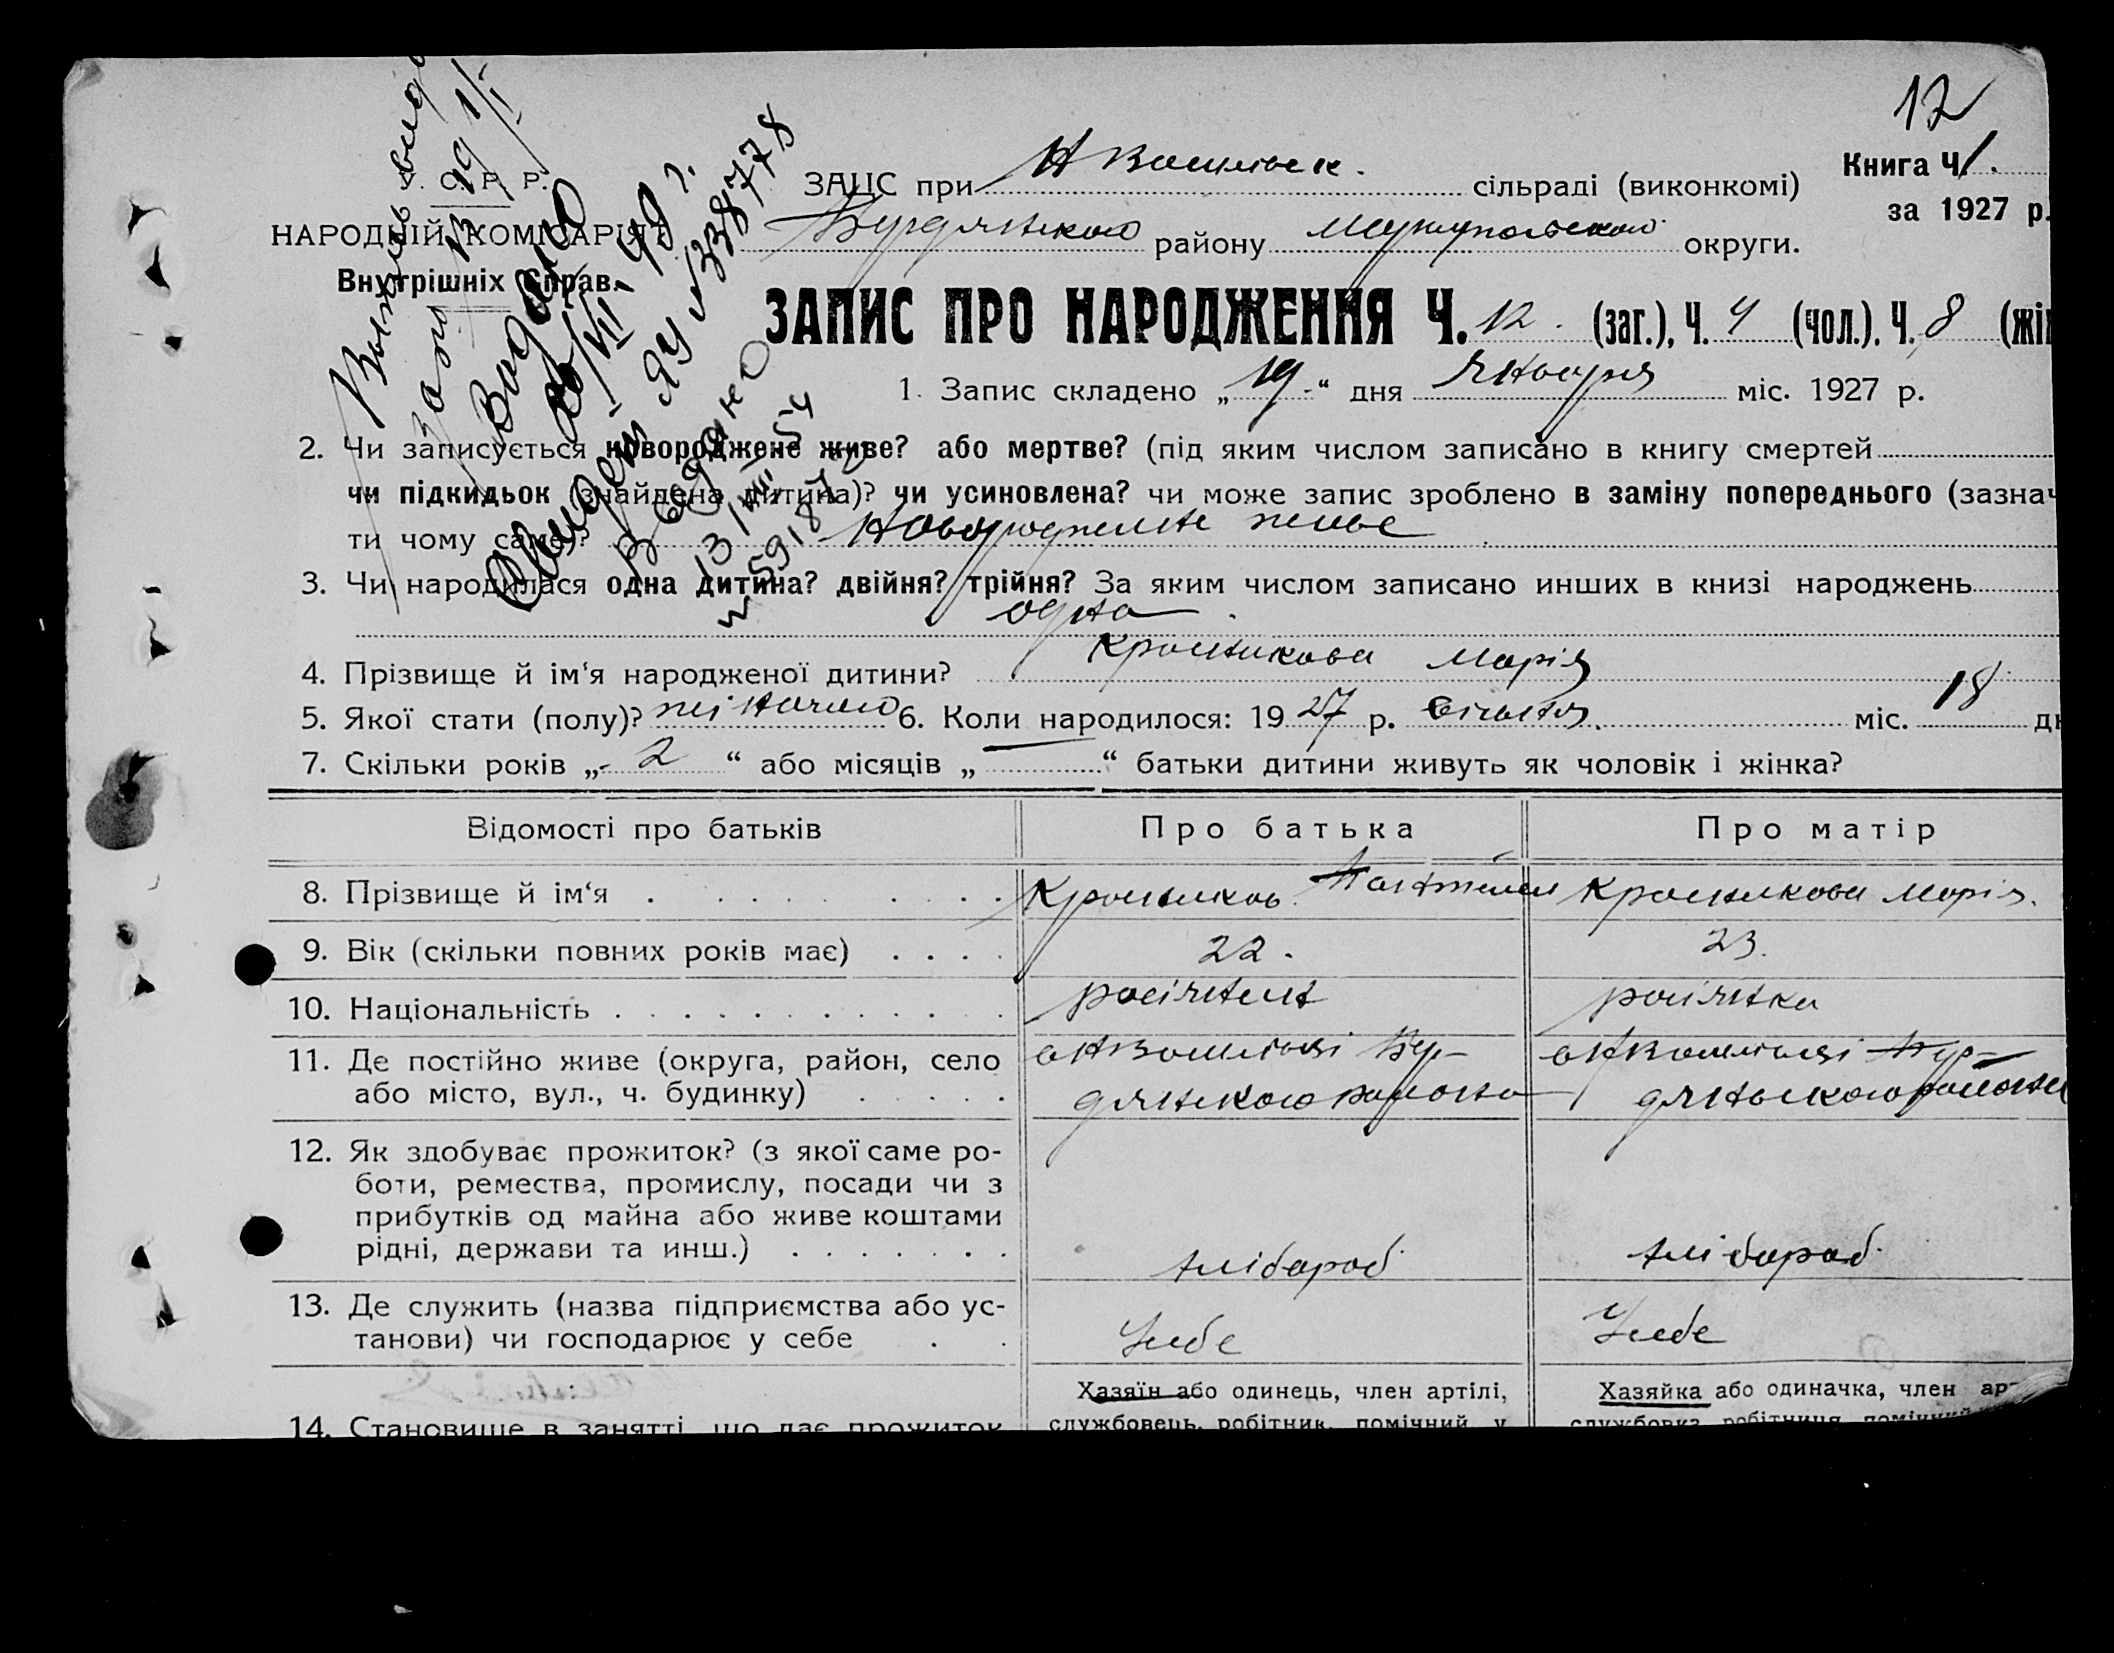 12
У. С. Р. Р.
НАРОДНІЙ КОМІСАРІЯТ
Внутрішніх Справ.
Видано
Видано
13/VIII 54
ЗАЦС при Н Васильєв. сільраді (виконкомі)
Книга Ч. 1.
за 1927 р.
Бердянського району Маріупольської округи.
ЗАПИС ПРО НАРОДЖЕННЯ Ч. 12. (заг.), Ч. 4 (чол.). Ч. 8 (жін
1. Запис складено „19“ дня Января міс. 1927 р.
2. Чи записується новороджене живе? або мертве? (під яким числом записано в книгу смертей
чи підкидьок (знайдена дитина)? чи усиновлена? чи може запис зроблено в заміну попереднього (зазнач
ти чому саме)? Новороджене живе
3. Чи народилася одна дитина? двійня? трійня? За яким числом записано инших в книзі народжень
одна
4. Прізвище й ім‘я народженої дитини? Марія
5. Якої стати (полу)? жіночого 6. Коли народилося: 1927 р. Січня міс. 18 дн
7. Скільки років „ 2 “ або місяців „ — “ батьки дитини живуть як чоловік і жінка?
Відомості про батьків Про батька Про матір
8. Прізвище й ім‘я Марія.
9. Вік (скільки повних років має) 22. 23.
10. Національність росіянин росіянка
11. Де постійно живе (округа, район, село
або місто, вул., ч. будинку)
с Н Васильівці Бер-
дянського району
с Н Васильівці Бер-
дянського району
12. Як здобуває прожиток? (з якої саме ро-
боти, ремества, промислу, посади чи з
прибутків од майна або живе коштами
рідні, держави та инш.) хлібороб хлібороб
13. Де служить (назва підприємства або ус-
танови) чи господарює у себе У себе У себе
14. Становище в занятті, що дає прожиток
Хазяїн або одинець, член артілі,
службовець, робітник, помічний у
Хазяйка або одиначка, член арт
службовка робітниця помічний